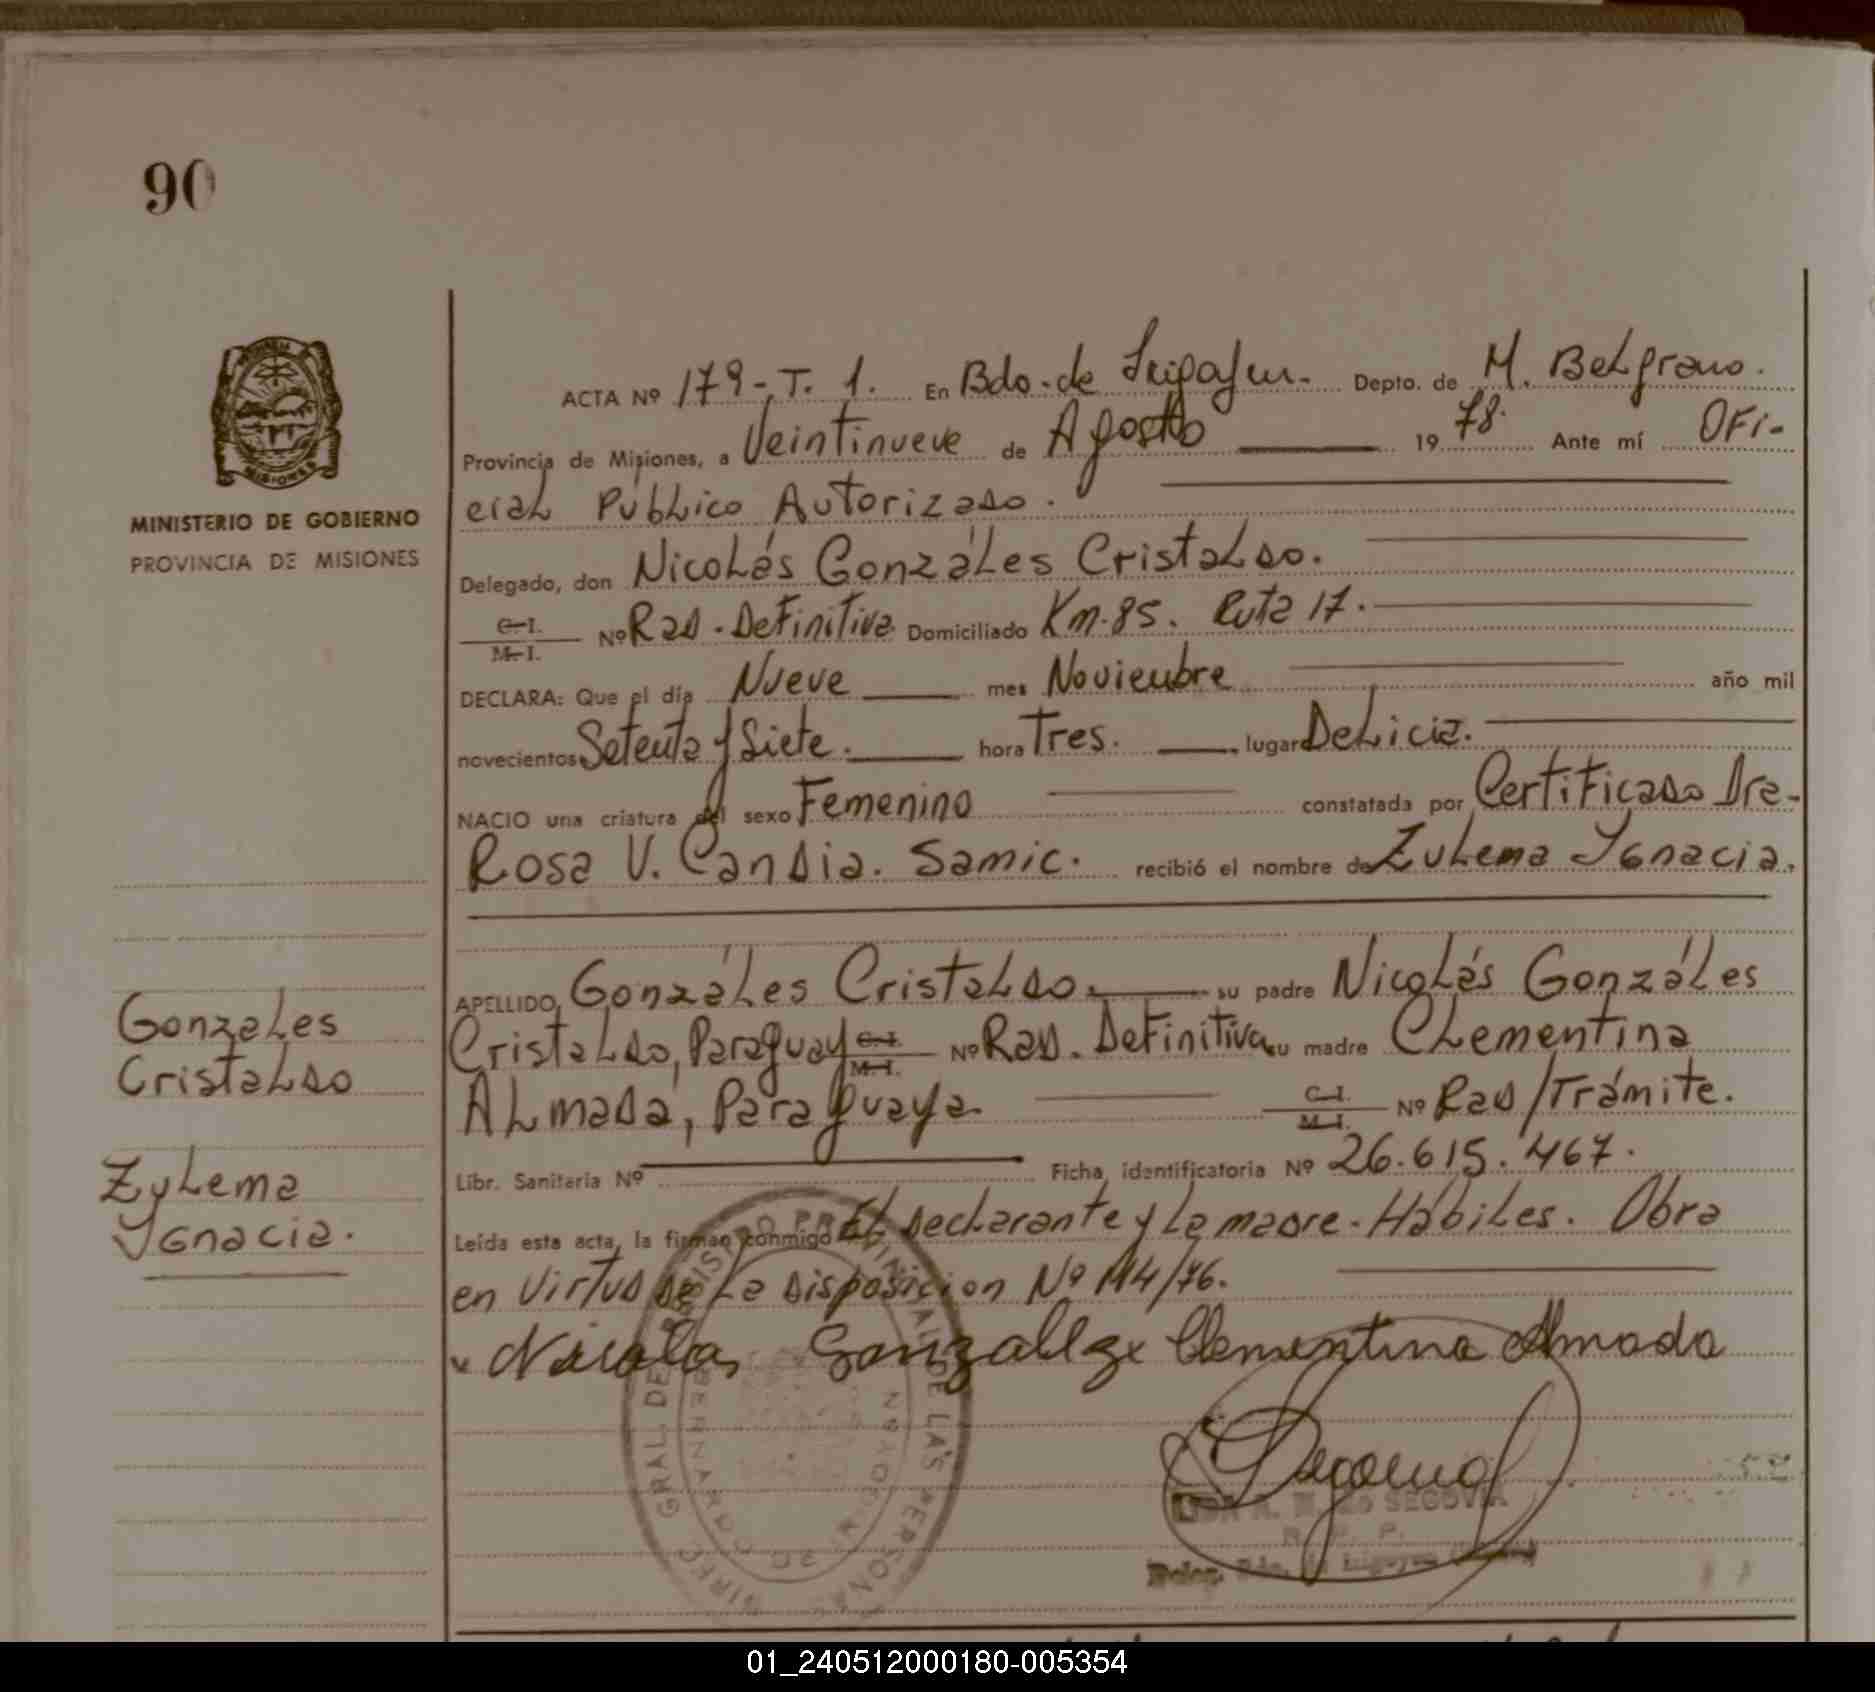 90
ACTA Nº 179-T. 1. En Bdo. de Irigoyen. Depto. de M. BeLgrano.
Provincia de Misiones, a Veintinueve de Agosto 1978. Ante mí OFi-
ciaL PúbLico Autorizado.
MINISTERIO DE GOBIERNO
PROVINCIA DE MISIONES
Delegado, don NicoLás GonzáLes CristaLdo.
C.I. M.I. Nº Rad. DeFinitiva Domiciliado Km. 85. Ruta 17.
DECLARA: Que el día Nueve mes Noviembre año mil
novecientos Setenta y Siete. hora Tres. lugar DeLicia.
NACIO una criatura del sexo Femenino constatada por CertiFicado Dra-
Rosa V. Candia. Samic. recibió el nombre de ZuLema Ygnacia.
APELLIDO GonzáLes CristaLdo. su padre NicoLás GonzáLes
CristaLdo, Paraguay C.I. M.I. Nº Rad. DeFinitiva. su madre CLementina
ALmada, Paraguaya. C.I. M.I. Nº Rad/Trámite.
GonzaLes
CristaLdo
ZuLema
Ygnacia.
Libr. Sanitaria Nº Ficha identificatoria Nº 26.615.467.
Leída esta acta, la firman conmigo EL decLarante y La madre. HábiLes. Obra
en Virtud de La disposicion Nº 114/76.
Nicolas Gonzallez Clementina Almada
DIREC. GRAL. DEL REGISTRO PROVINCIAL DE LAS PERSONAS
SEGOVIA
R. P. P.
Deleg. Bdo. de Irigoyen
01_240512000180-005354